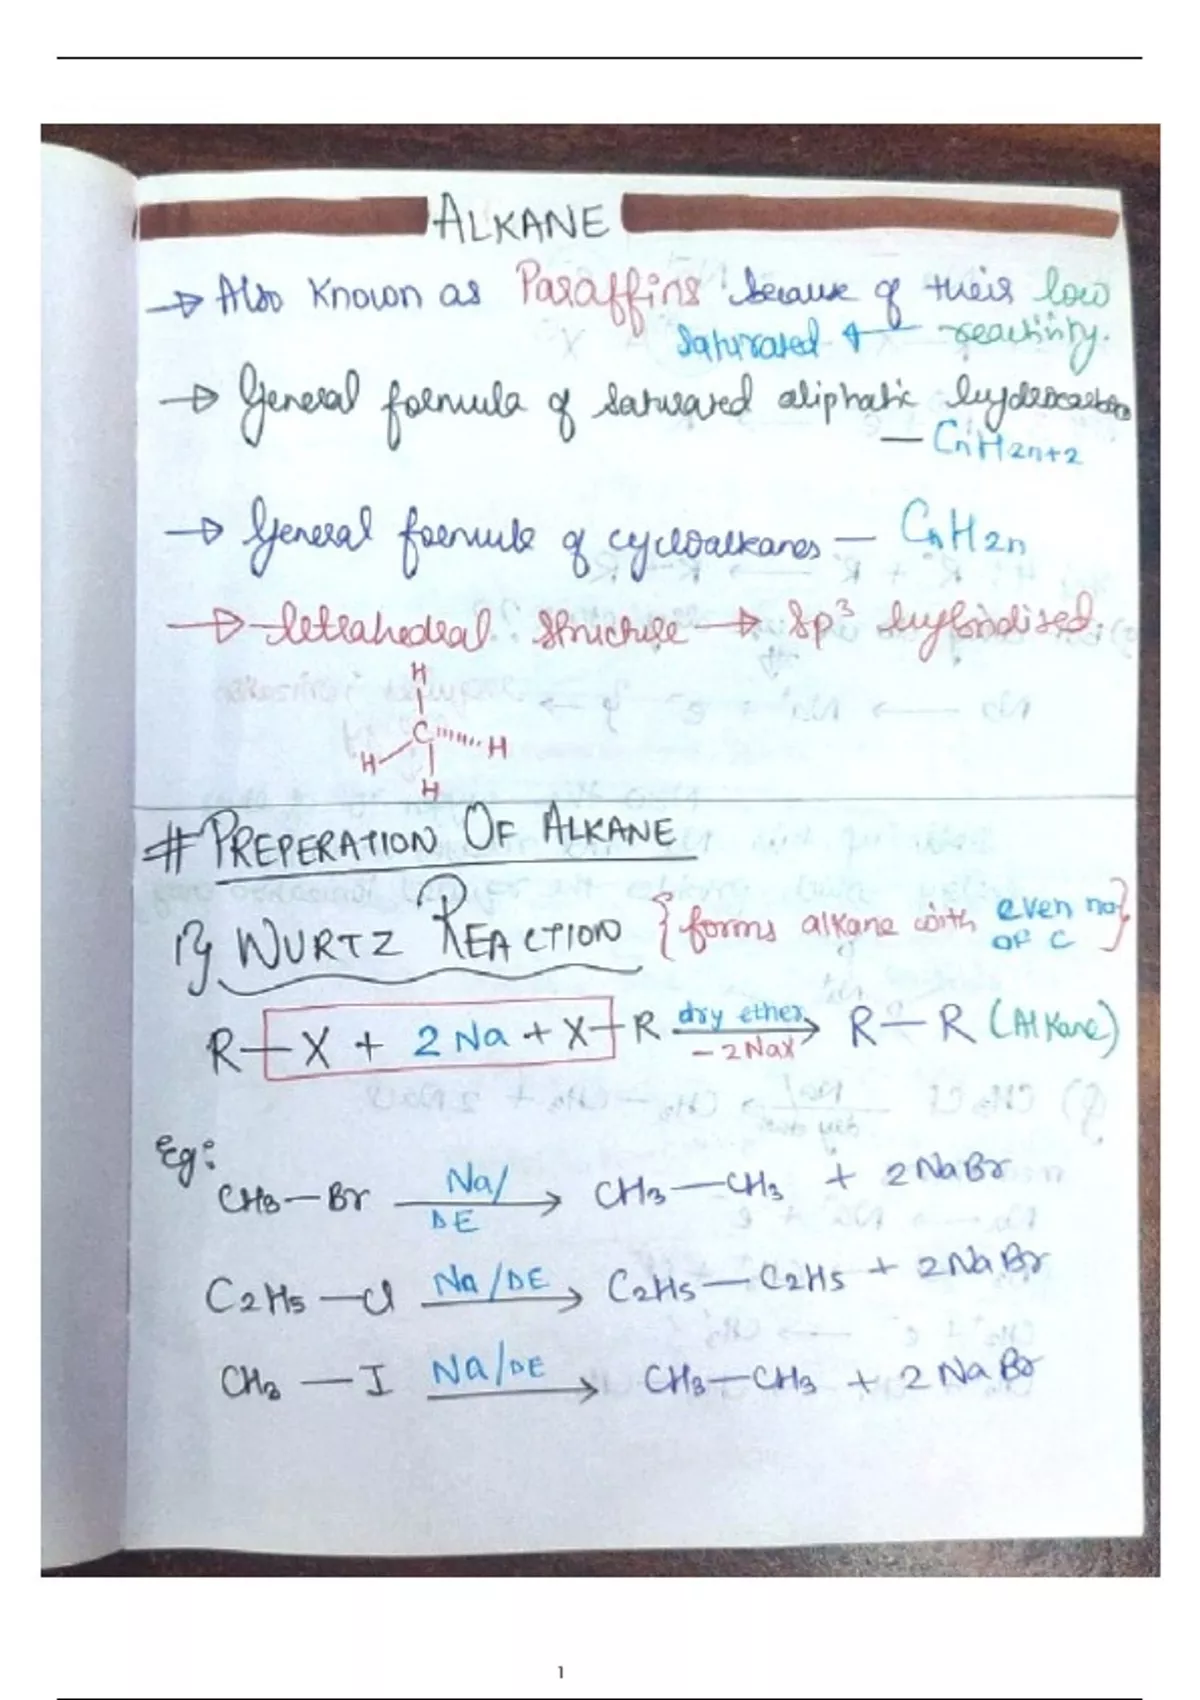 ALKANE
→ Also Known as Paraffins because of their low
saturated ← reactivity.
→ General formula of saturated aliphatic hydrocarbon
— CnH2n+2
→ General formula of cycloalkanes — CnH2n
→ tetrahedral structure → Sp³ hybridised.
H
C H
H
H
# PREPERATION OF ALKANE
1) WURTZ REACTION {forms alkane with even no. of C}
R—X + 2Na + X—R dry ether → R—R (Alkane)
- 2NaX
Eg:
CH3—Br Na/DE → CH3—CH3 + 2NaBr
C2H5—Cl Na/DE → C2H5—C2H5 + 2NaBr
CH3—I Na/DE → CH3—CH3 + 2NaBr
1